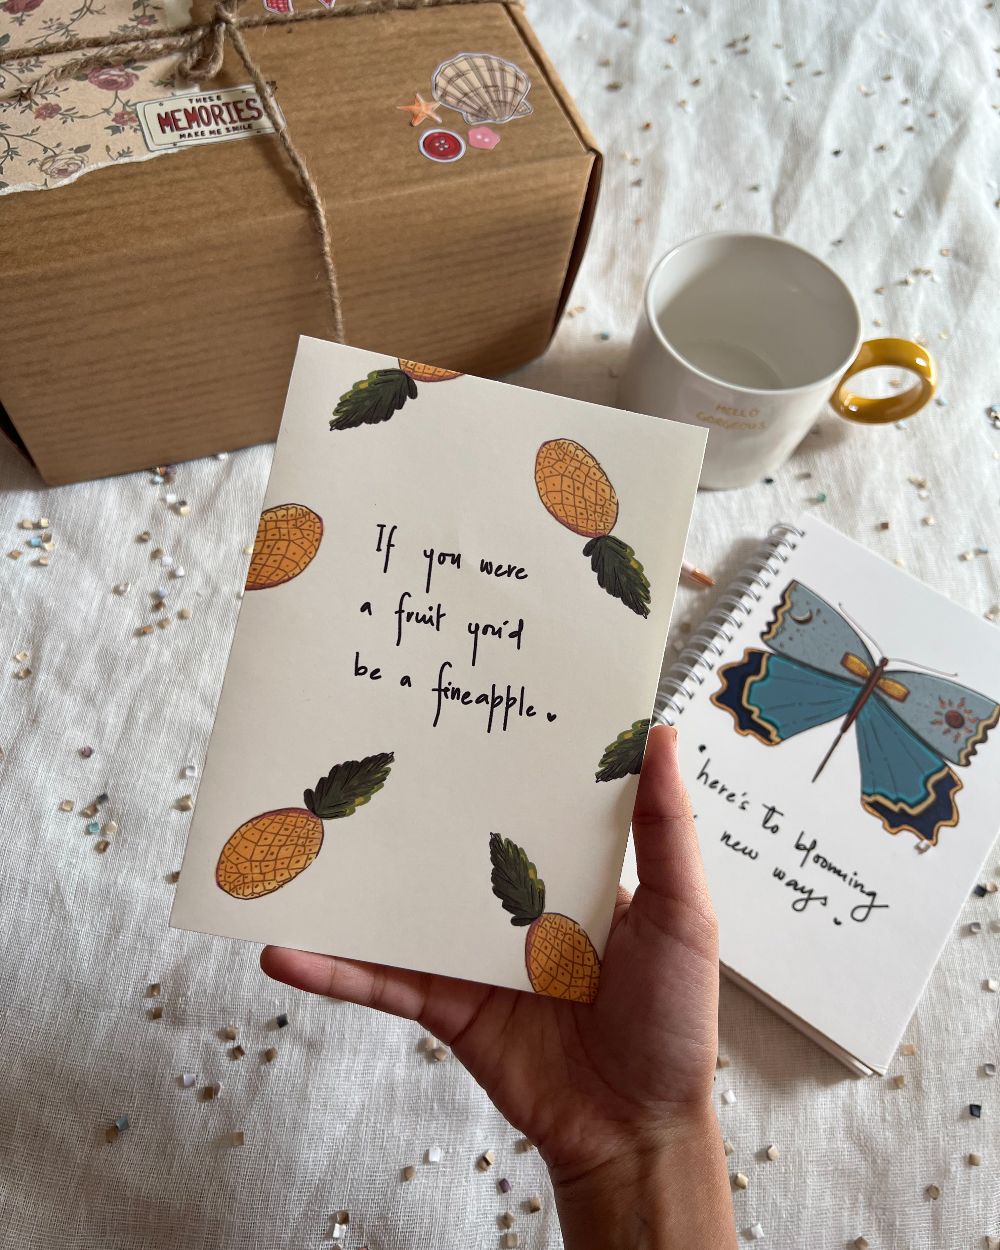 THESE
MEMORIES
MAKE ME SMILE
HELLO
GORGEOUS
If you were
a fruit you'd
be a fineapple.
here's to blooming
new ways.